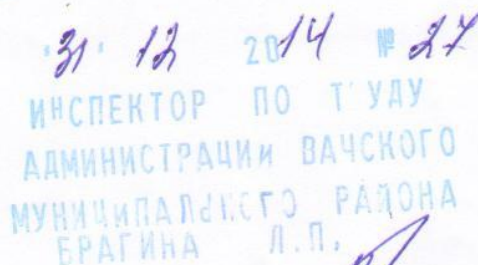 "31" 12 2014 № 27
ИНСПЕКТОР ПО ТРУДУ
АДМИНИСТРАЦИИ ВАЧСКОГО
МУНИЦИПАЛЬНОГО РАЙОНА
БРАГИНА Л.П.